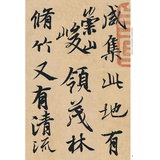 咸集此地有
崇山峻領茂林
脩竹又有清流